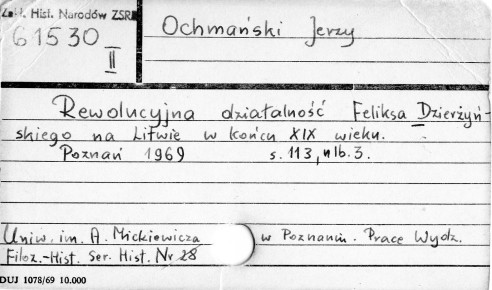 Zakł. Hist. Narodów ZSRR
61530
II
Ochmański Jerzy
Rewolucyjna działalność Feliksa Dzierżyń-
skiego na Litwie w końcu XIX wieku.
Poznań 1969 s. 113, nlb. 3.
Uniw. im. A. Mickiewicza w Poznaniu. Prace Wydz.
Filoz.-Hist. Ser. Hist. Nr 28
DUJ 1078/69 10.000